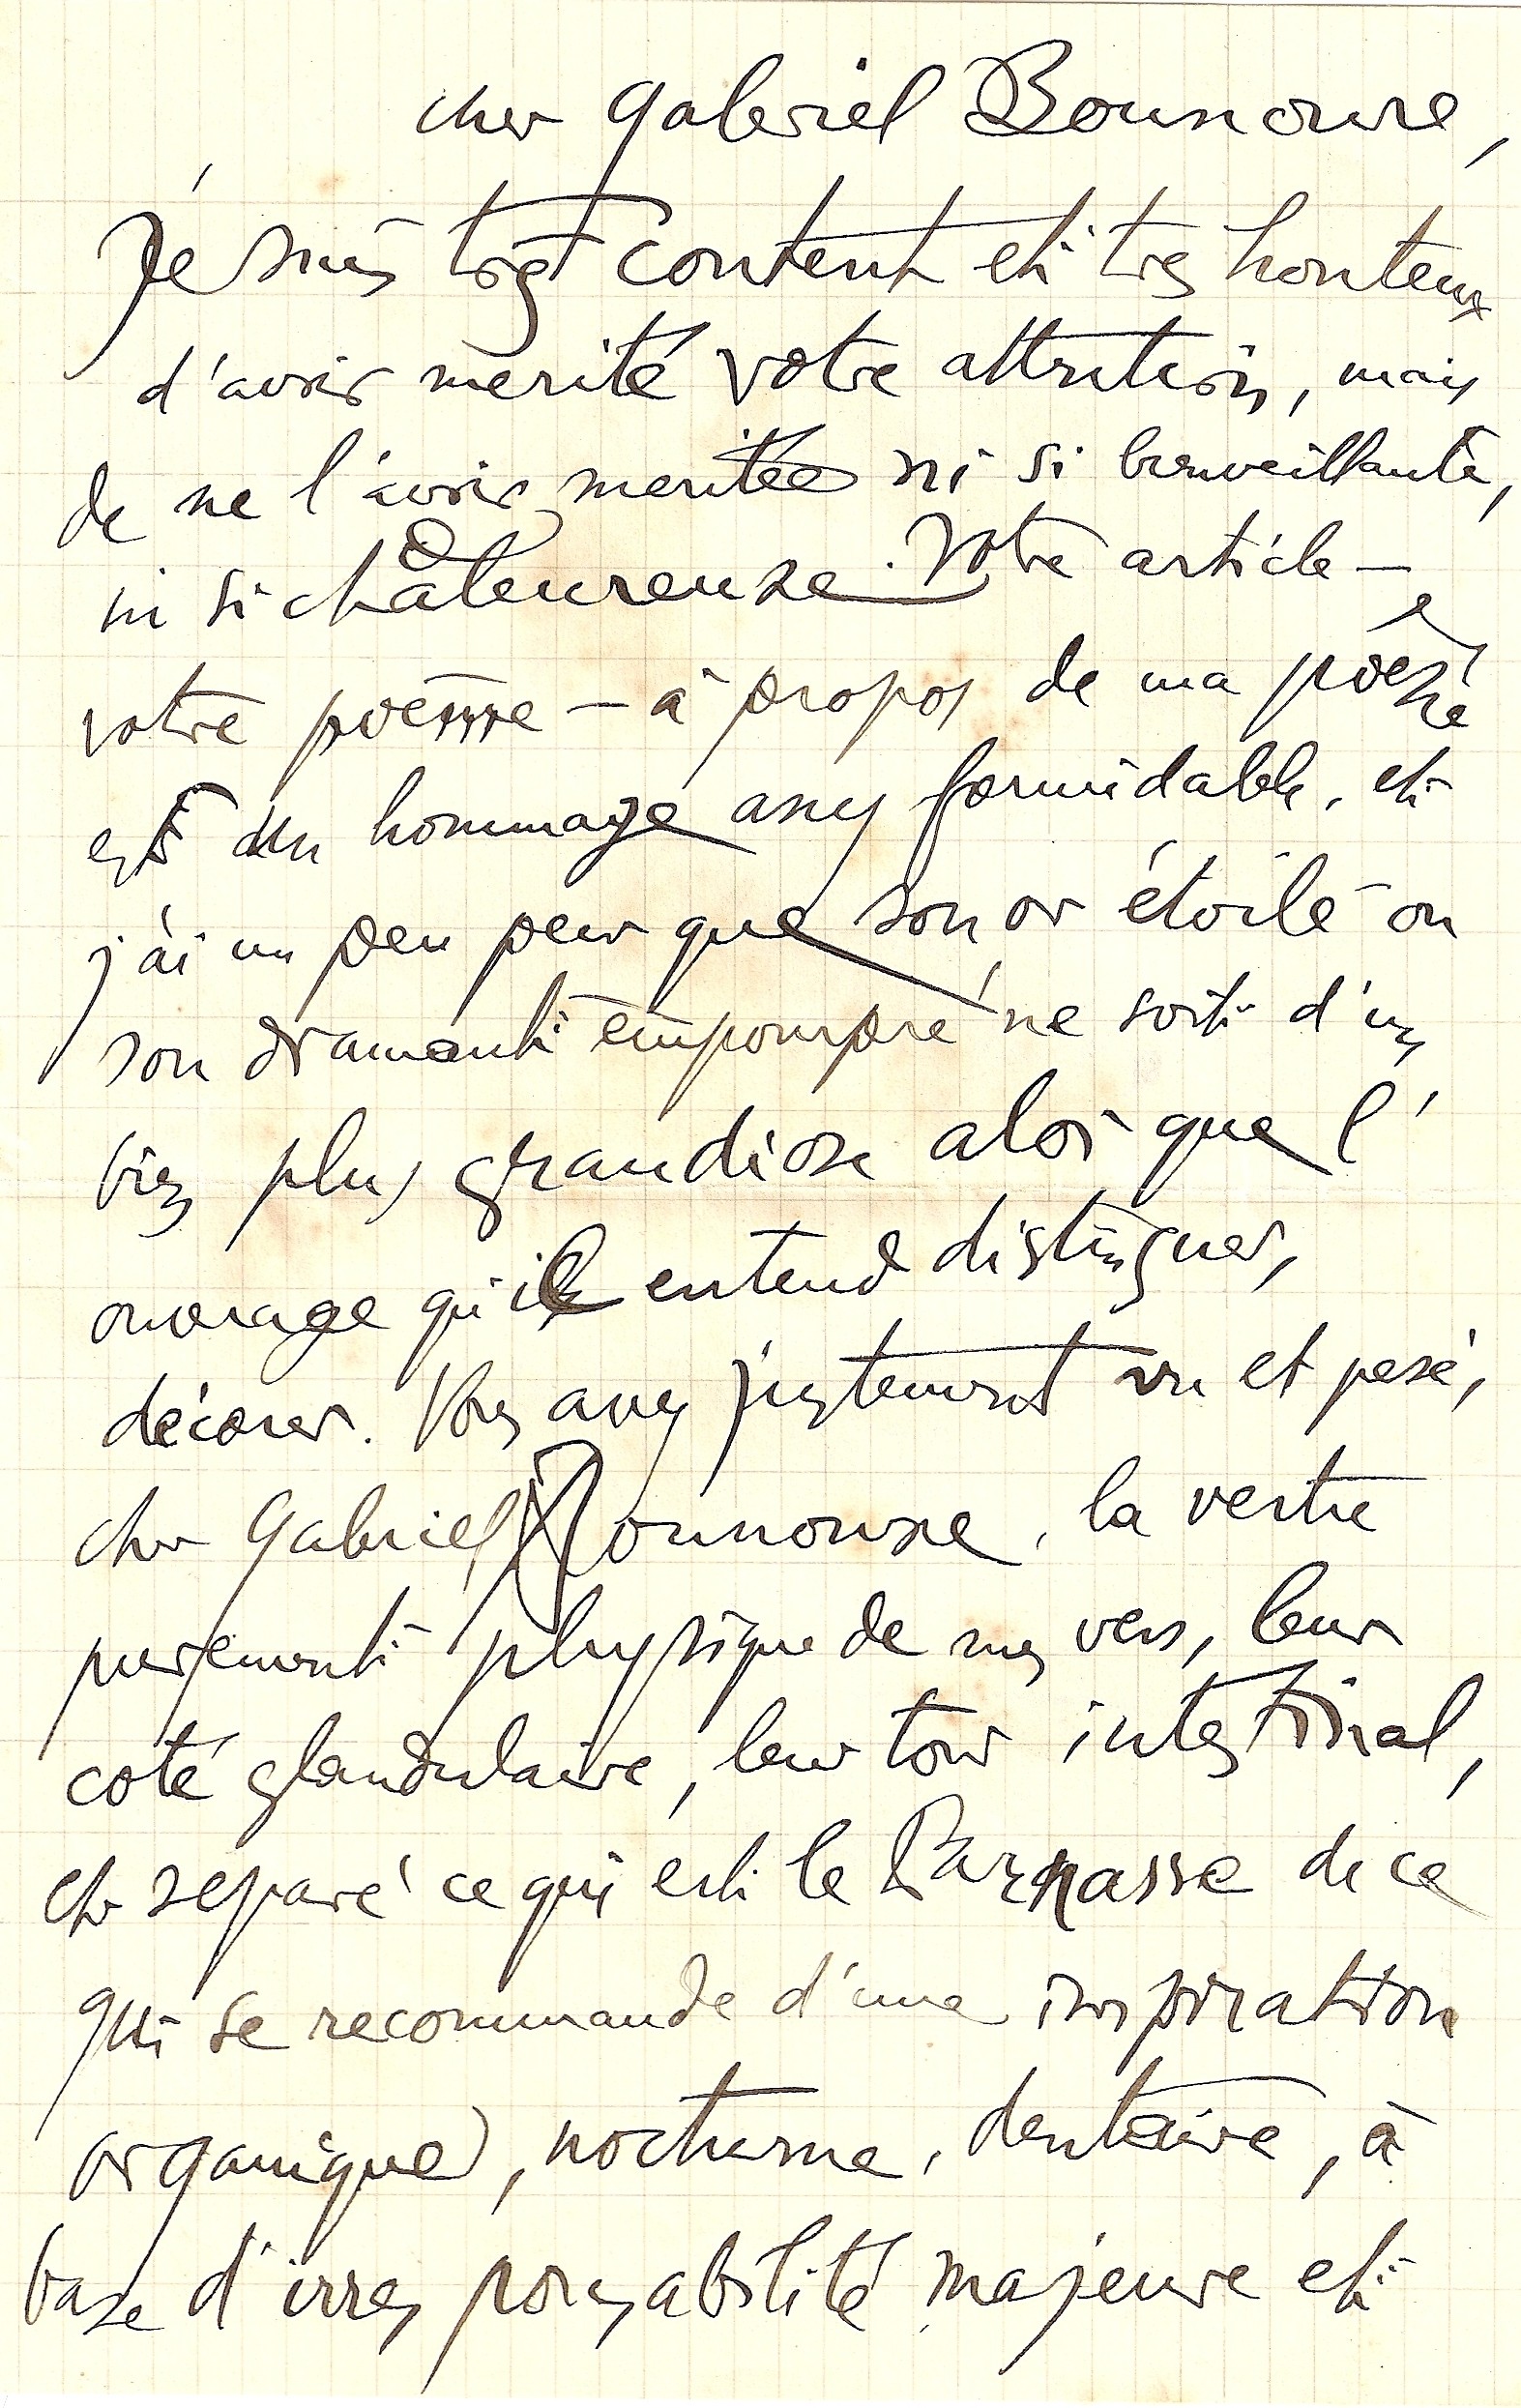 cher Gabriel Bounoure,
Je suis très content et très honteux
d'avoir mérité votre attention, mais
de ne l'avoir méritée ni si bienveillante,
ni si chaleureuse. Votre article —
votre poème — à propos de ma poésie
est un hommage assez formidable, et
j'ai un peu peur que son or étoilé ou
son diamant empourpré ne soit d'un
bien plus grandiose aloi que l'
ouvrage qu'il entend distinguer,
décorer. Vous avez justement vu et pesé,
cher Gabriel Bounoure, la vertu
purement physique de mes vers, leur
coté glandulaire, leur tour intestinal,
et séparé ce qui est le Parnasse de ce
qui se recommande d'une inspiration
organique, nocturne, dentaire, à
base d'irresponsabilité majeure et